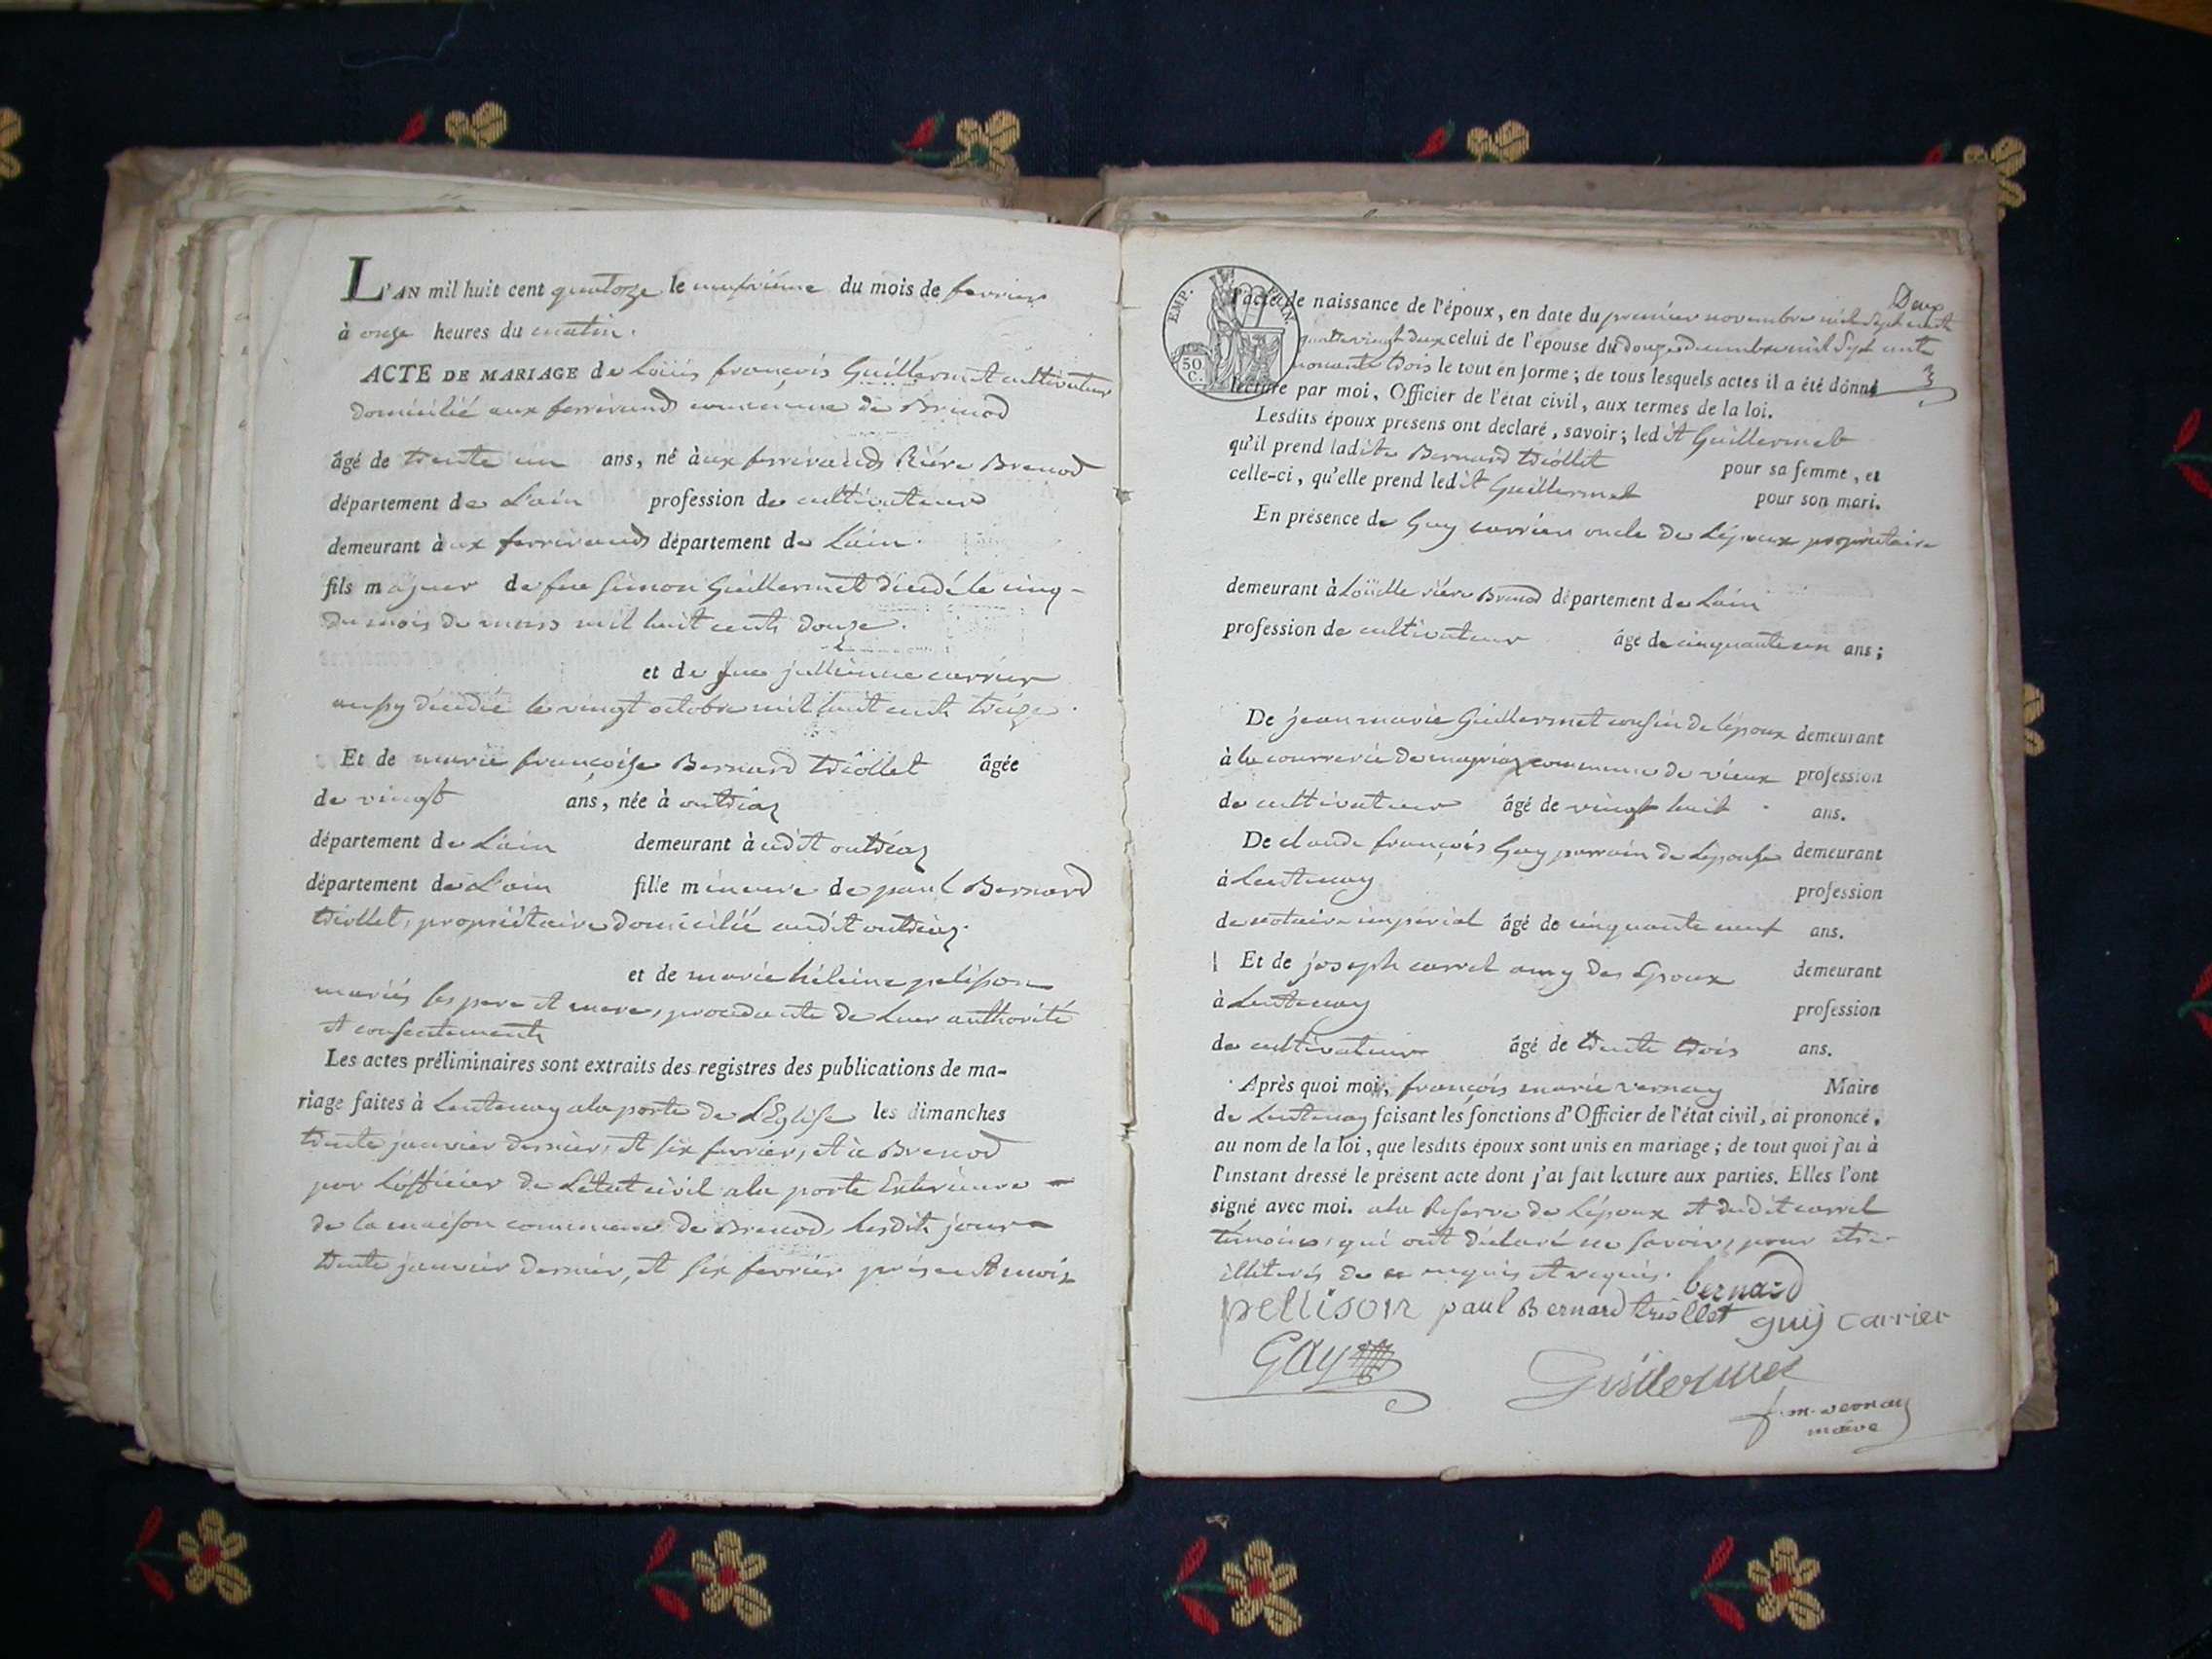 L'AN mil huit cent quatorze le neufvième du mois de fevrier
à onze heures du matin.
ACTE DE MARIAGE de Loüis françois Guillermet cultivateur
domicilié aux ferrirands commune de Brenod
âgé de trente un ans, né àux ferrirands Riére Brenod
département de L'ain profession de cultivateur
demeurant àux ferrirands département de L'ain.
fils majeur de feu Simon Guillermet décédé le cinq
du mois de mars mil huit cents douze.
et de feue jullienne carrier
aussy décédée le vingt octobre mil huit cents treize.
Et de marie françoise Bernard triollet âgée
de vingt ans, née à outriaz
département de L'ain demeurant àudit outriaz
département de L'ain fille mineure de paul Bernard
triollet, propriétaire domicilié audit outriaz.
et de marie héleine pelisson
mariés ses pere et mere, procedante de leur authorité
et consentements
Les actes préliminaires sont extraits des registres des publications de ma-
riage faites à Lentenay a la porte de L'Eglise les dimanches
trente janvier dernier, et six fevrier, et à Brenod
par L'officier de L'état civil a la porte Exterieure
de la maison commune de Brenod, lesdits jours
trente janvier dernier, et six fevrier présent mois
Deux
EMP. FRAN.
50 C.
l'acte de naissance de l'époux, en date du premier novembre mil sept cents
quatre vingt deux celui de l'épouse du douze decembre mil sept cents
nonante trois le tout en forme ; de tous lesquels actes il a été donné
lecture par moi, Officier de l'état civil, aux termes de la loi.
Lesdits époux présens ont déclaré, savoir ; ledit Guillermet
qu'il prend ladite Bernard triollet pour sa femme, et
celle-ci, qu'elle prend ledit Guillermet pour son mari.
En présence de Guy carrier oncle de L'époux propriétaire
demeurant à riére Brenod département de L'ain
profession de cultivateur âgé de cinquante un ans ;
De jean marie Guillermet cousin de l'époux demeurant
à la courrerie de commune de vieux profession
de cultivateur âgé de vingt huit ans.
De claude françois Gay parrain de L'épouse demeurant
à Lentenay profession
de notaire impérial âgé de cinquante neuf ans.
Et de joseph carrel amy des Epoux demeurant
à Lentenay profession
de cultivateur âgé de trente trois ans.
Après quoi moi, françois marie vernay Maire
de Lentenay faisant les fonctions d'Officier de l'état civil, ai prononcé,
au nom de la loi, que lesdits époux sont unis en mariage ; de tout quoi j'ai à
l'instant dressé le présent acte dont j'ai fait lecture aux parties. Elles l'ont
signé avec moi. a la Reserve de L'époux et dudit carrel
témoins, qui ont déclaré ne savoir, pour etre
illiterés de ce enquis et requis.
bernard
pellison paul Bernard triollet guy carrier
Gay Guillermet
f. m. vernay
maire